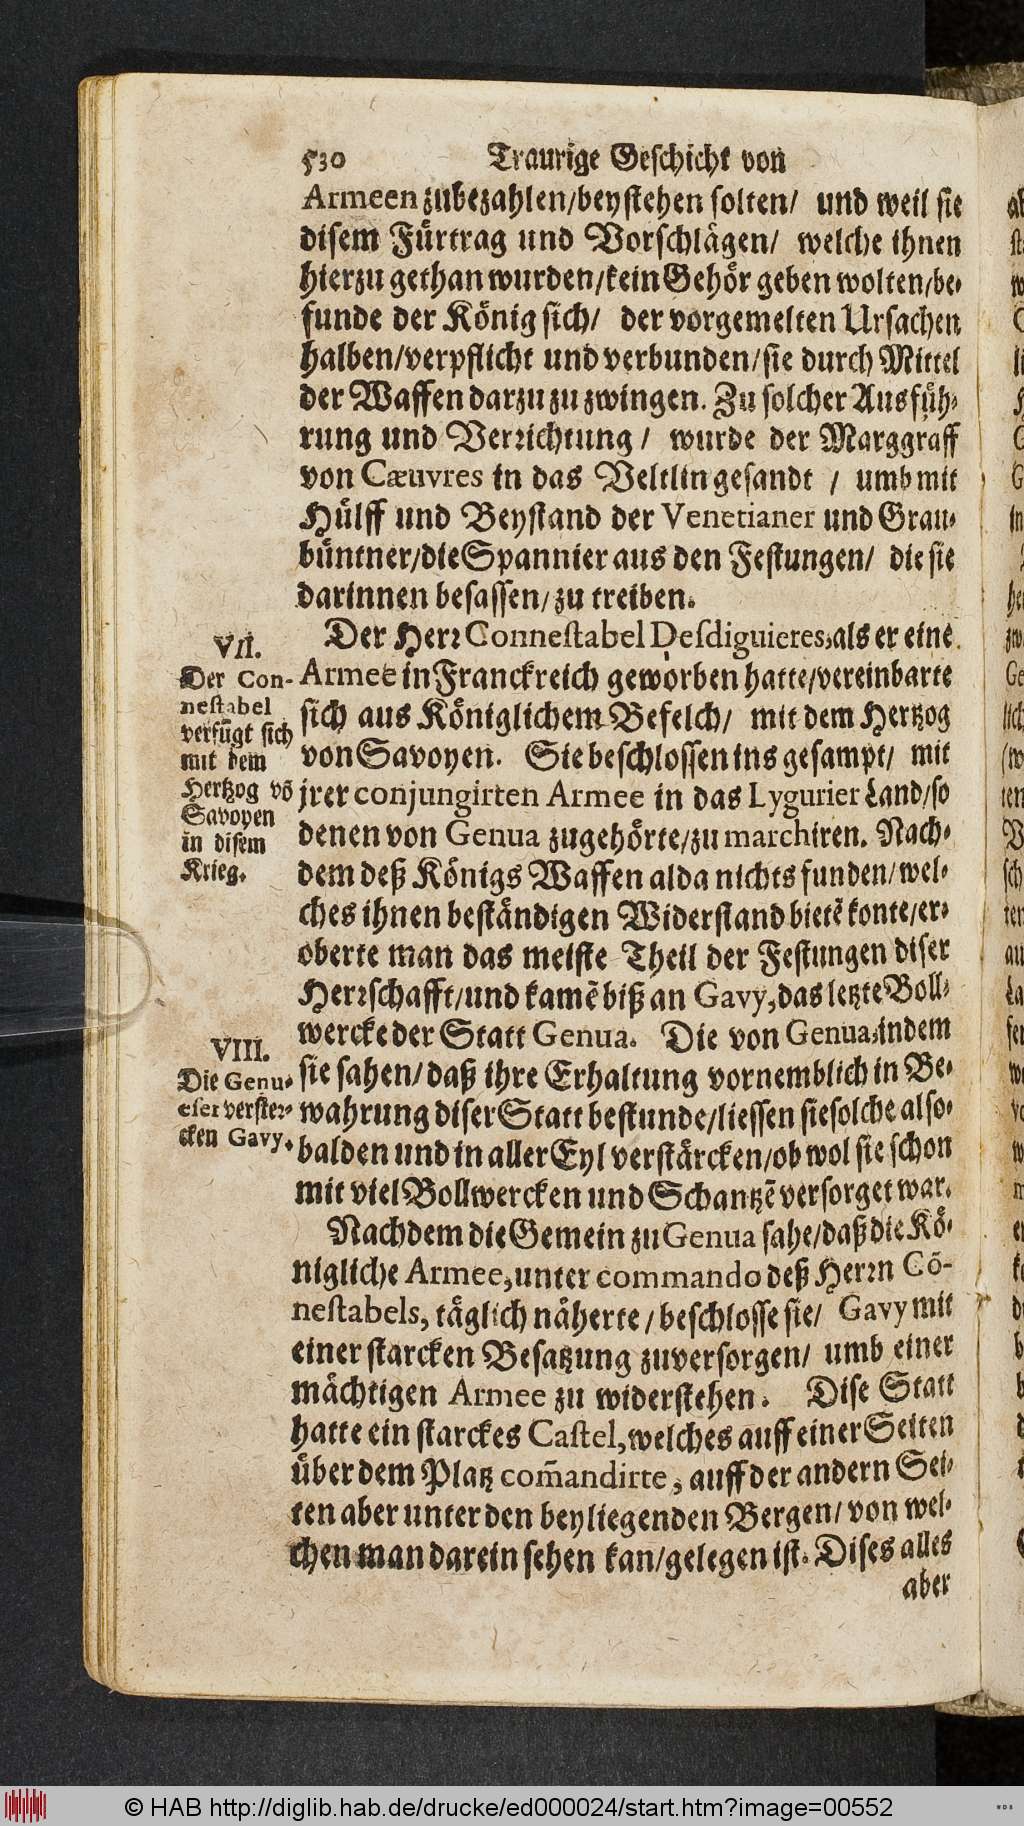 530 Traurige Geschicht von
Armeen zubezahlen/beystehen solten/ und weil sie
disem Fürtrag und Vorschlägen/ welche ihnen
hierzu gethan wurden/kein Gehör geben wolten/be-
funde der König sich/ der vorgemelten Ursachen
halben/verpflicht und verbunden/sie durch Mittel
der Waffen darzu zu zwingen. Zu solcher Ausfüh-
rung und Verrichtung/ wurde der Marggraff
von Cæuvres in das Veltlin gesandt / umb mit
Hülff und Beystand der Venetianer und Grau-
büntner/die Spannier aus den Festungen/ die sie
darinnen besassen/zu treiben.
VII.
Der Con-
nestabel
verfügt sich
mit dem
Hertzog võ
Savoyen
in disem
Krieg.
Der Herr Connestabel Desdiguieres, als er eine
Armee in Franckreich geworben hatte/vereinbarte
sich aus Königlichem Befelch/ mit dem Hertzog
von Savoyen. Sie beschlossen ins gesampt/ mit
jrer conjungirten Armee in das Lygurier Land/so
denen von Genua zugehörte/zu marchiren. Nach-
dem deß Königs Waffen alda nichts funden/wel-
ches ihnen beständigen Widerstand bietẽ konte/er-
oberte man das meiste Theil der Festungen diser
Herrschafft/und kamẽ biß an Gavy, das letzte Boll-
wercke der Statt Genua. Die von Genua, indem
VIII.
Die Genu-
eser verster-
cken Gavy.
sie sahen/daß ihre Erhaltung vornemblich in Be-
wahrung diser Statt bestunde/liessen sie solche also-
balden und in aller Eyl verstärcken/ob wol sie schon
mit viel Bollwercken und Schantzẽ versorget war.
Nachdem die Gemein zu Genua sahe/daß die Kö-
nigliche Armee, unter commando deß Herrn Cõ-
nestabels, täglich näherte/beschlosse sie/ Gavy mit
einer starcken Besatzung zuversorgen/ umb einer
mächtigen Armee zu widerstehen. Dise Statt
hatte ein starckes Castel, welches auff einer Seiten
über dem Platz com̃andirte, auff der andern Sei-
ten aber unter den beyliegenden Bergen/von wel-
chen man darein sehen kan/gelegen ist. Dises alles
aber
© HAB http://diglib.hab.de/drucke/ed000024/start.htm?image=00552